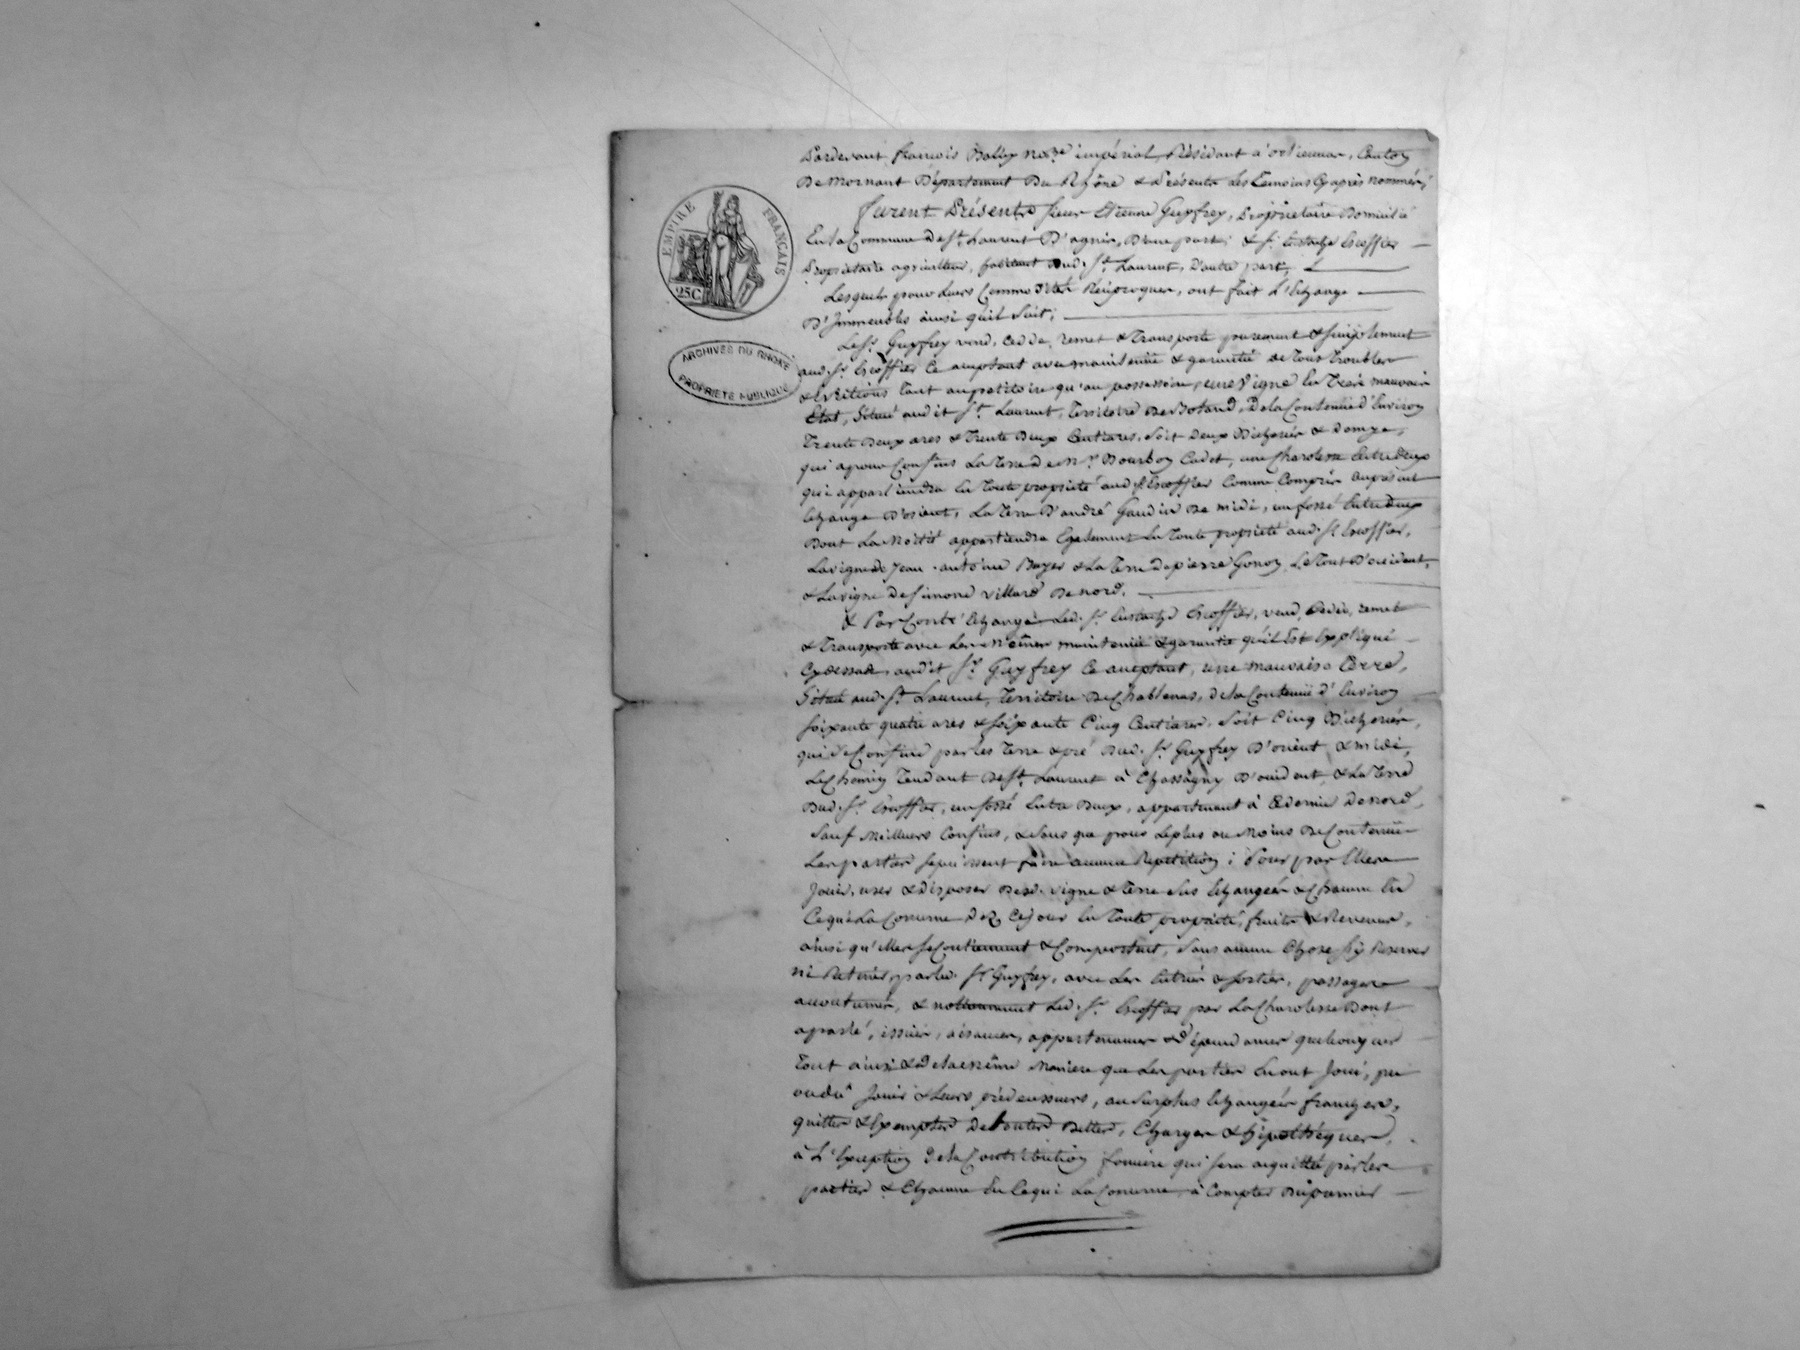 EMPIRE FRANÇAIS
25C
ARCHIVES DU RHONE
PROPRIETE PUBLIQUE
Pardevant françois Bally no.re impérial, Résidant à orlienas, Canton
De Mornant Département Du Rhône & Présents les Temoins Cy après nommés;
furent Présents sieur Etienne Guyfrey, Propriétaire Domicilié
En la Commune de St. Laurent D'agnin, D'une part; & sr. Eustache Escoffier
Propriétaire agriculteur, habitant aud. St. Laurent, D'autre part,
Lesquels pour Leurs Commodités Réciproques, ont fait L'Echange
D'Immeubles ainsi quil suit;
Le sr. Guyfrey vend, cedde, remet & Transporte purement & simplement
aud. sr. Escoffier Ce acceptant avec maintenüe & garantie de tous Troubles
& Evictions tant au petitoire qu'au possessoire, une vigne En Très mauvais
Etat, Située audit St. Laurent, Territoire De, De la Contenüe d'Environ
Trente Deux ares & Trente Deux Centiares, soit Deux Bicherées & Demye,
qui a pour Confins La Terre de Mr. Bourbon Cadet, une Charolesse Entredeux
qui appartiendra En Toute propriété aud. sr. Escoffier Comme Comprise au présent
Echange D'orient, La Terre D'andré Gaudin De midi, un fossé Entredeux
Dont La Moitié appartiendra Egalement En Toute propriété aud. sr. Escoffier,
La vigne de Jean-antoine Buyer & La Terre de pierre Gonon, Le Tout D'occident,
& La vigne de simond villard De nord.
& Par Contr'Echange Led. sr. Eustache Escoffier, vend, Cedde, remet
& Transporte avec Les Mêmes maintenüe & garantie qu'il Est Expliqué
Cy dessus, audit sr. Guyfrey Ce acceptant, une mauvaise Terre,
Située aud. St. Laurent, Territoire De Chablenas, de la Contenüe d'Environ
soixante quatre ares & soixante Cinq Centiares, soit Cinq Bicherées,
qui se Confine par les Terre & pré Dud. sr. Guyfrey D'orient & midi,
Le Chemin Tendant De St. Laurent à Chassagny D'occident, & La Terre
Dud. sr. Escoffier, un fossé Entre Deux, appartenant à de nord,
Sauf Meilleurs Confins, & sans que pour Le plus ou Moins De Contenüe
Les parties se puissent faire aucune Répétition; Pour par Elles
Jouir, user & disposer Desd. vigne & Terre sus Echangées & Chacune En
Ce qui La Concerne dez Ce jour En Toute propriété, fruits & Revenus,
ainsi qu'Elles se Contiennent & Comportent, sans aucune Chose s'y Reserver
ni Retenir par led. sr. Guyfrey, avec Les Entrées & sorties, passages
accoutumés, & nottamment Led. sr. Escoffier par La Charolesse Dont
a parlé, issües, aisances, appartenances & dépendances quelconques
tout ainsi & de la même Maniere que Les parties En ont Joui, pu
ou dû Jouir & Leurs prédécesseurs, au surplus Echangées franches,
quittes & Exemptes de toutes Dettes, Charges & hipothèques,
à L'Exception de la Contribution fonciere qui sera acquittée par Les
parties & Chacune En Ce qui La Concerne, à Compter Du premier